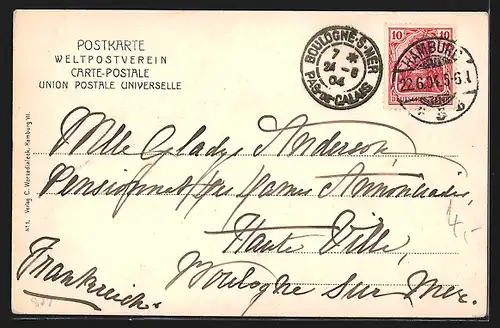 POSTKARTE
WELTPOSTVEREIN
CARTE-POSTALE
UNION POSTALE UNIVERSELLE
BOULOGNE-S-MER
7 *
24 - 6
04
PAS-DE-CALAIS
10 10
HAMBURG
22.6.04. 5-6.N
Mlle Gladys Anderson,
Pensionnat des Dames Annonciades,
Haute Ville,
Boulogne sur Mer.
Frankreich.
4,-
Verlag C. Worzedialeck, Hamburg VI.